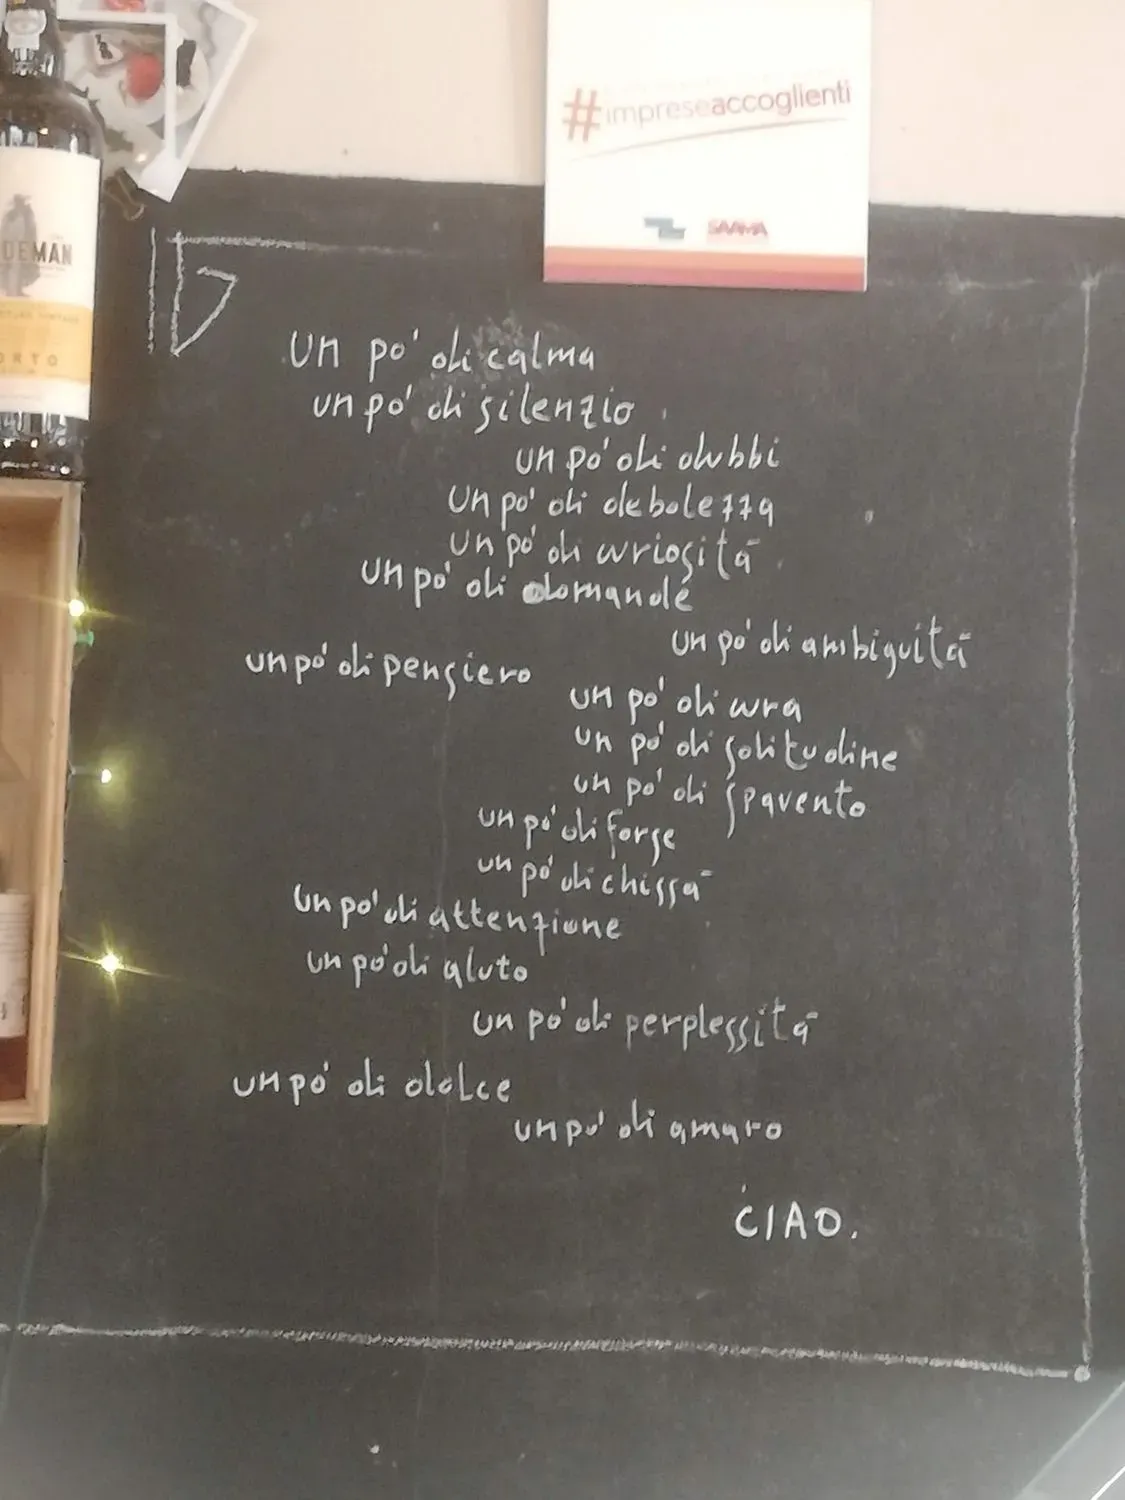 #impreseaccoglienti
SAAMA
DEMAN
ORTO
un po' di calma
un po' di silenzio
un po' di dubbi
un po' di debolezza
un po' di curiosità
un po' di domande
un po' di ambiguità
un po' di pensiero
un po' di cura
un po' di solitudine
un po' di spavento
un po' di forse
un po' di chissà
un po' di attenzione
un po' di aiuto
un po' di perplessità
un po' di dolce
un po' di amaro
CIAO.